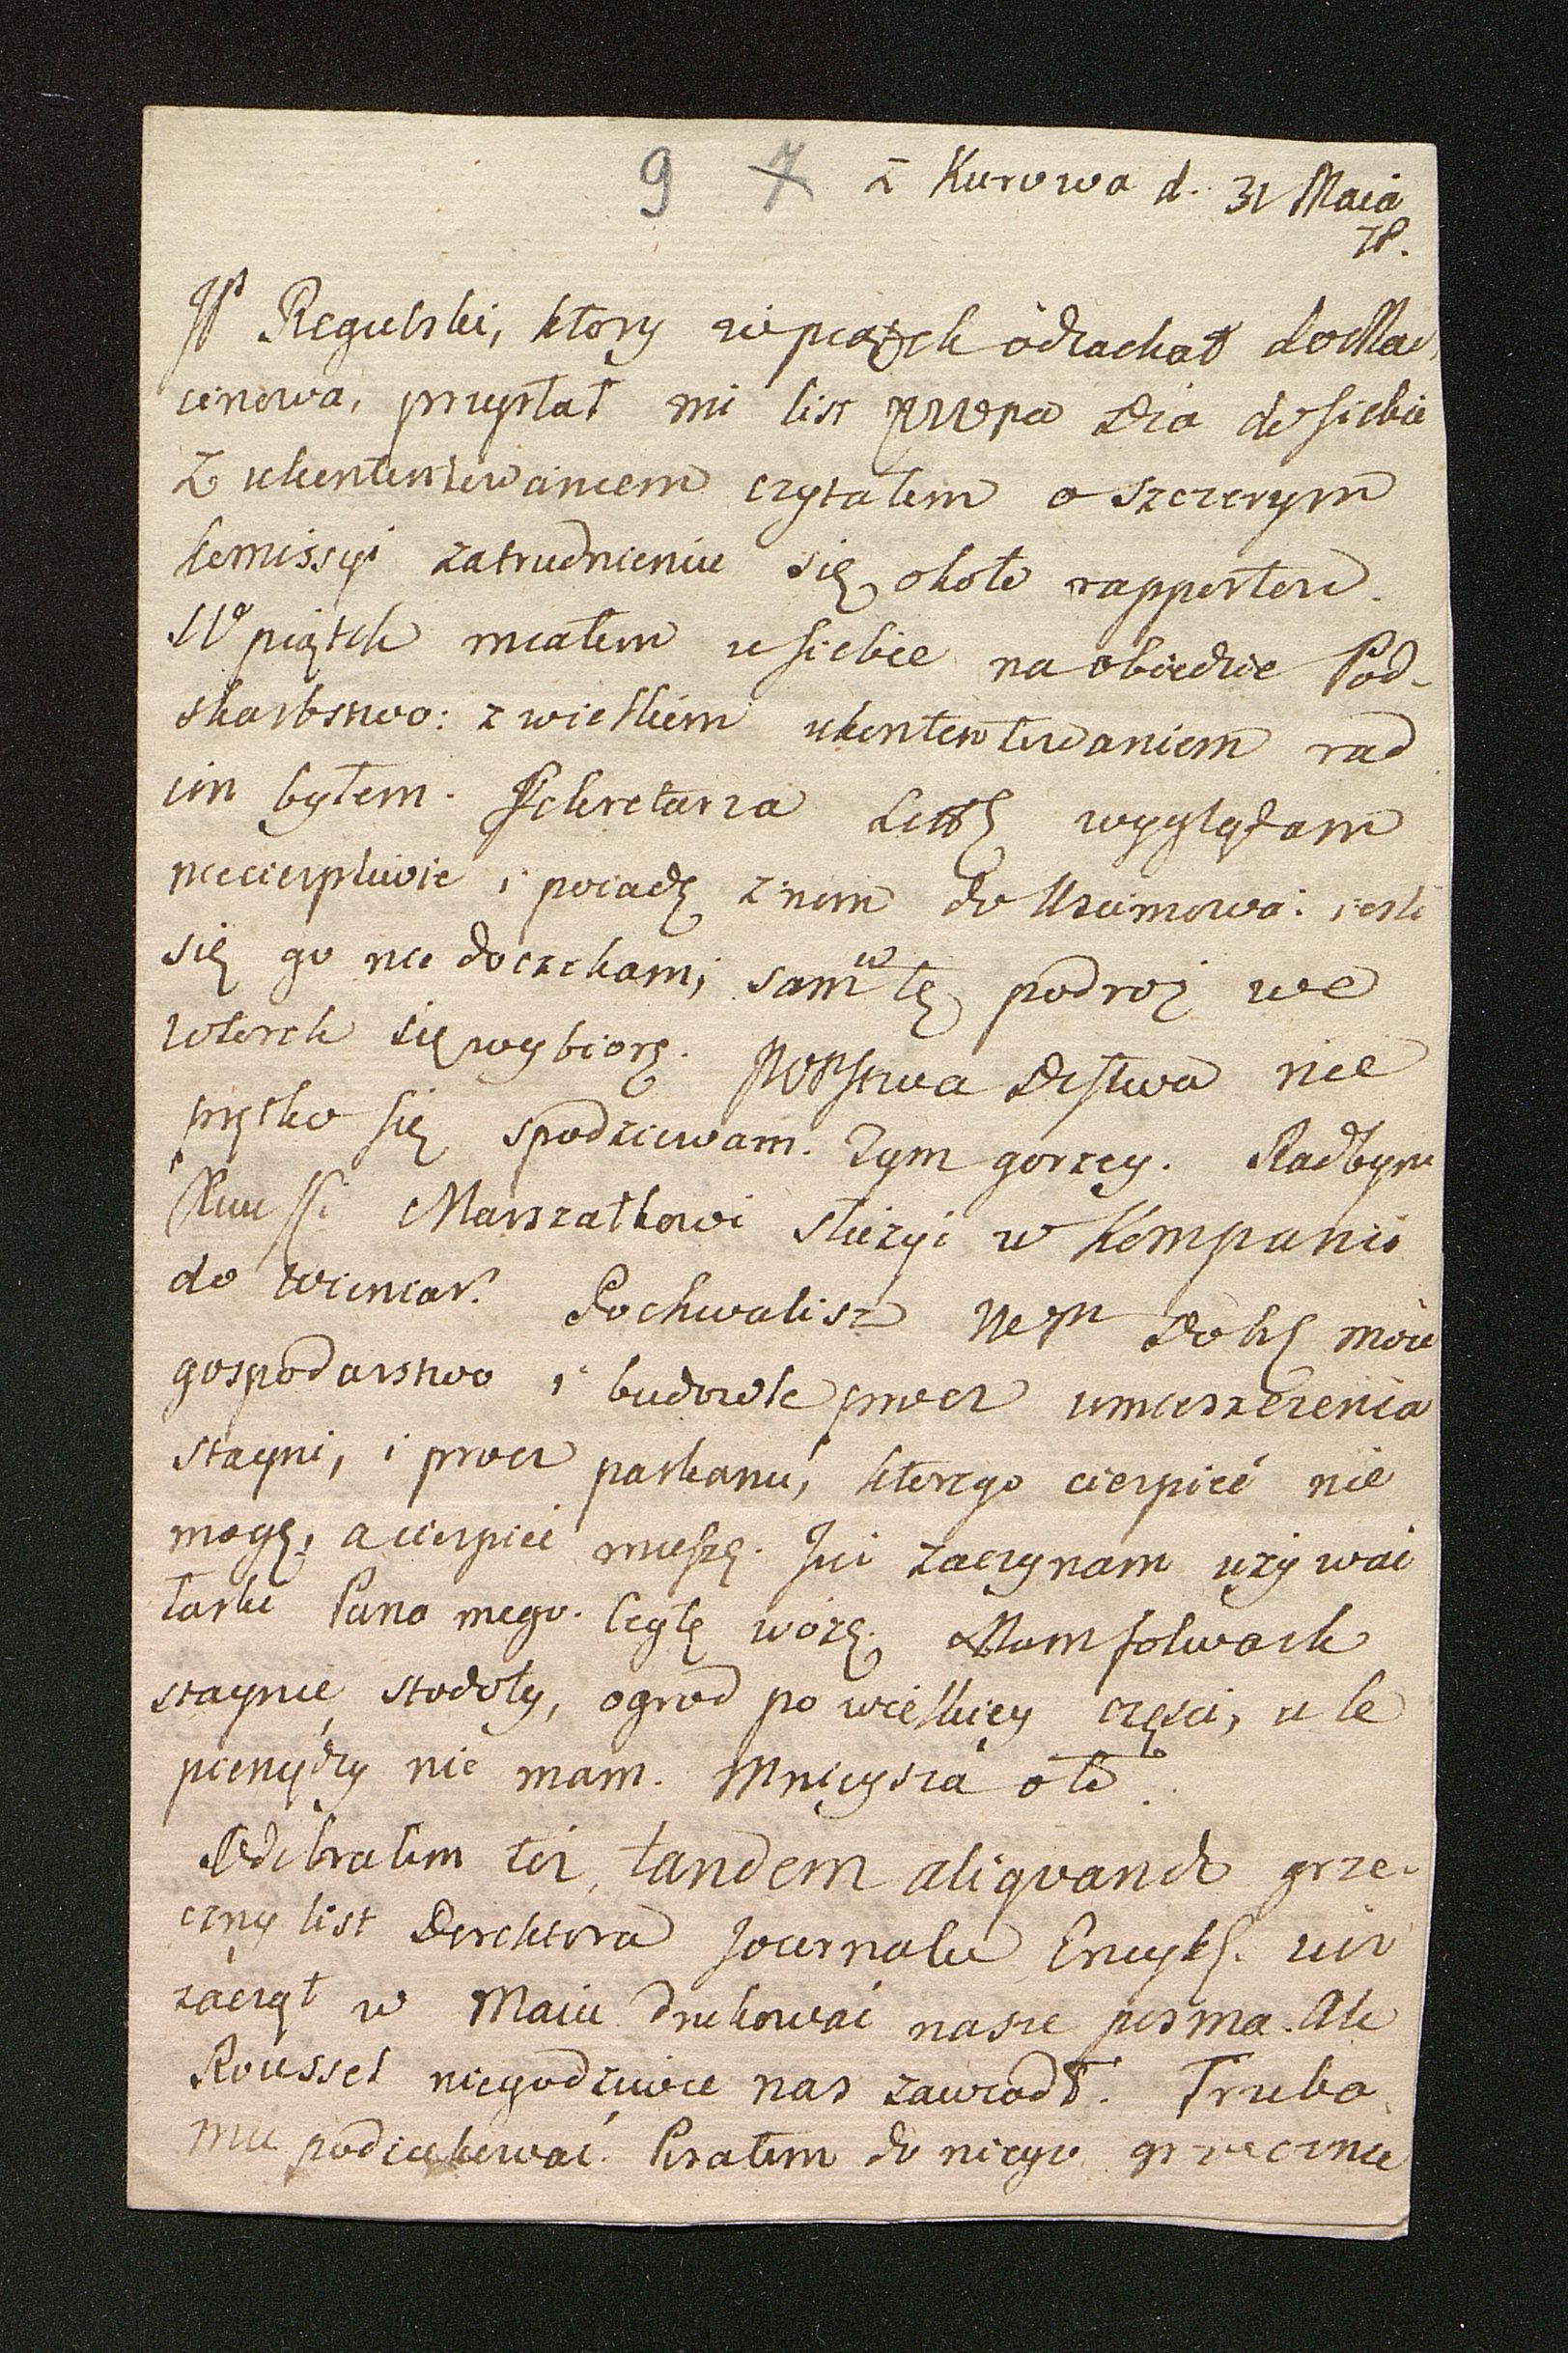 9 7 z Kurowa d. 31 Maia
78.
JP Regulski, ktory w piątek odiachał do Mac
ieiowa, przysłał mi list WPa Dia do siebie
z ukontentowaniem czytałem o szczerym
komissyi zatrudnieniu się około rapportow.
W piątek miałem u siebie na obiedzie Pod-
skarbstwo: z wielkiem ukontentowaniem rad
im byłem. Sekretarza wyglądam
niecierpliwie i poiadę z nim do Uscimowa: iesli
się go nie doczekam, sam w tę podroż we
wtorek się wybiorę. WPaństwa Dzstwa nie
prętko się spodziewam. Tym gorzey. Radbym
Marszałkowi służyć w kompanii
do Pochwalisz WcPn Dobr moie
gospodarstwo i budowle procz umieszczenia
stayni, i procz parkanu, ktorego cierpieć nie
mogę, a cierpieć muszę. Już zaczynam używać
łaski Pana mego. Cegłę wożę. Mam folwark
staynie, stodoły, ogrod po wielkiey części, ale
pieniędzy nie mam. Mnieysza o to.
Odebrałem też, tandem aliqvando grze-
czny list Direktora Journalu Encykl. iuż
zaczął w Maiu drukować nasze pisma. Ale
Roussel niegodziwie nas zawiodł. Trzeba
mu podziękować. Pisałem do niego grzecznie